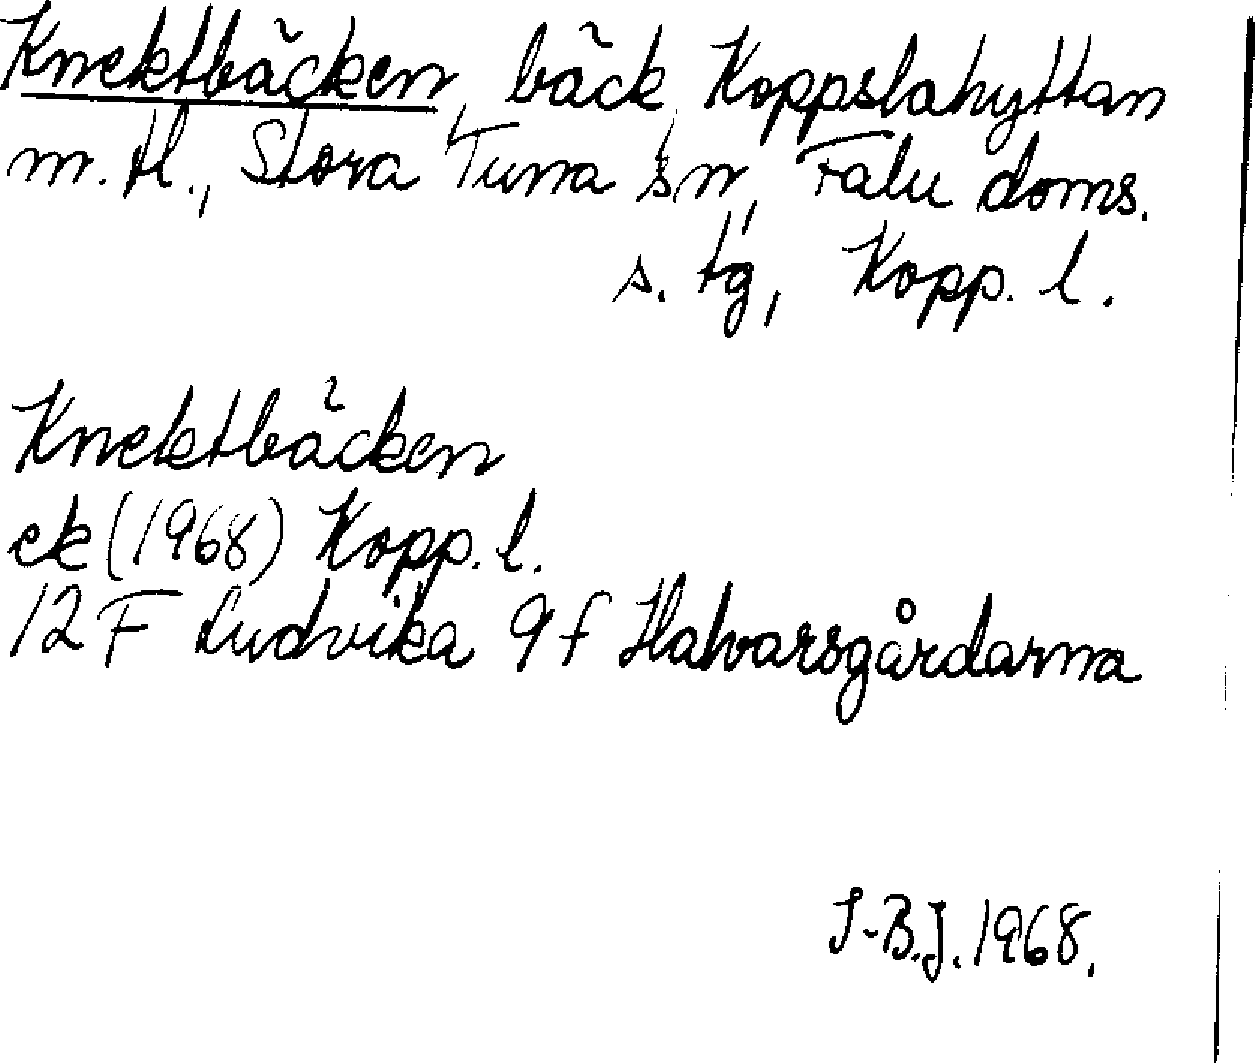 Knektbäcken, bäck, Koppslahyttan
m. fl., Stora Tuna sn, Falu doms.
s. tg, Kopp. l.
Knektbäcken
ek (1968) Kopp. l.
12 F Ludvika 9 f Halvarsgårdarna
I-B.J. 1968.